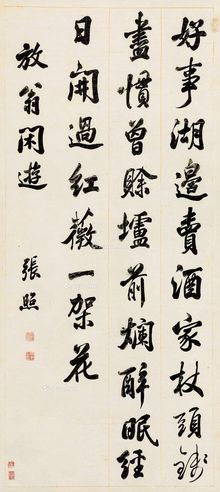 好事湖邊賣酒家杖頭錢
盡慣曾賒壚前爛醉眠經
日開過紅薇一架花
放翁閑遊
張照